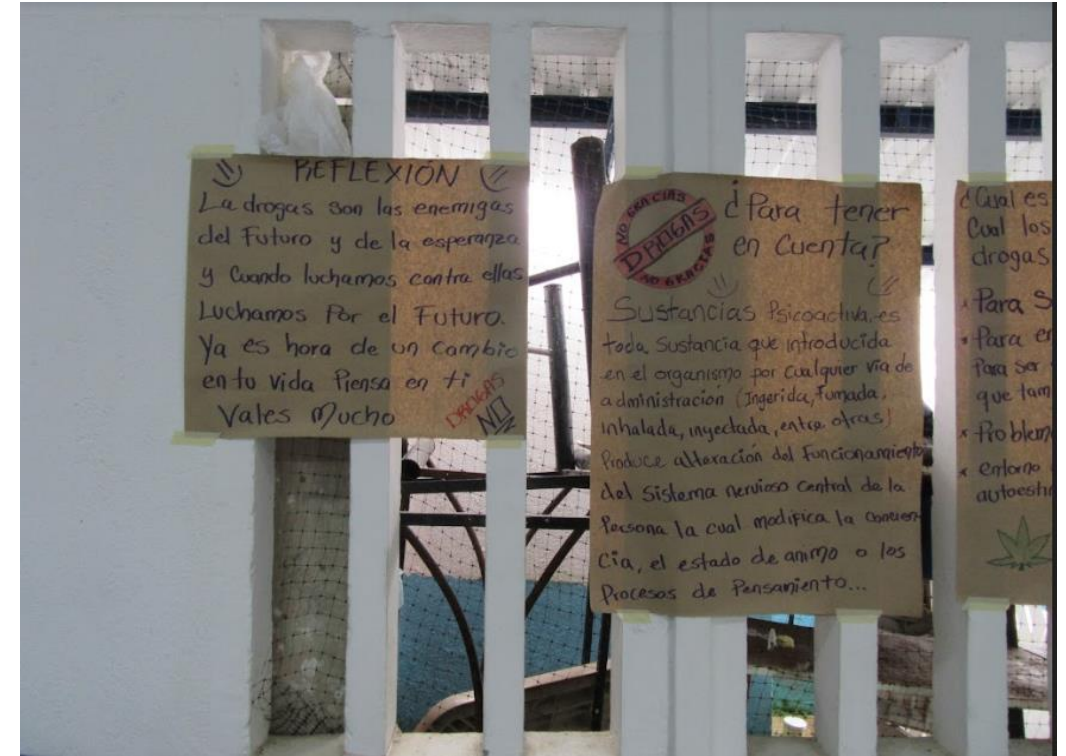 REFLEXIÓN
La drogas son las enemigas
del Futuro y de la esperanza
y Cuando luchamos contra ellas
Luchamos Por el Futuro.
Ya es hora de un Cambio
en tu vida Piensa en ti
Vales Mucho
DROGAS
NO
NO GRACIAS
DROGAS
NO GRACIAS
¿Para tener
en Cuenta?
Sustancias Psicoactiva, es
toda Sustancia que introducida
en el organismo por Cualquier Via de
administración (Ingerida, Fumada,
inhalada, inyectada, entre otras)
Produce alteración del Funcionamiento
del Sistema nervioso Central de la
Persona la cual modifica la Concien-
Cia, el estado de animo o los
Procesos de Pensamiento...
¿Cual es
Cual los
drogas
Para
Para
Para ser
que
entorno